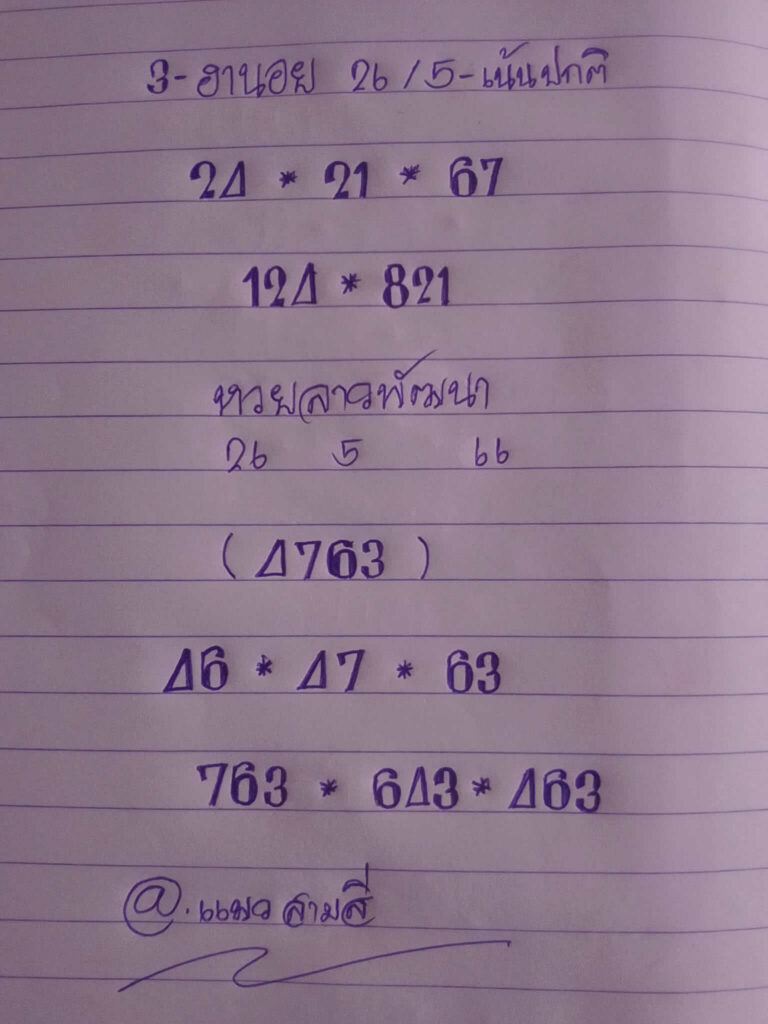 3-ฮานอย 26/5-เน้นปกติ
24 * 21 * 67
124 * 821
หวยลาวพัฒนา
26 5 66
(4763)
46 * 47 * 63
763 * 643 * 463
@.แมวสามสี